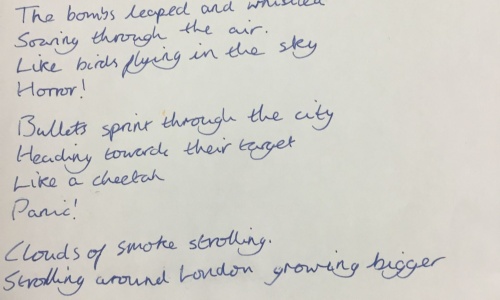 The bombs leaped and whistled
Soaring through the air.
Like birds flying in the sky
Horror!
Bullets sprint through the city
Heading towards their target
Like a cheetah
Panic!
Clouds of smoke strolling.
Strolling around London growing bigger